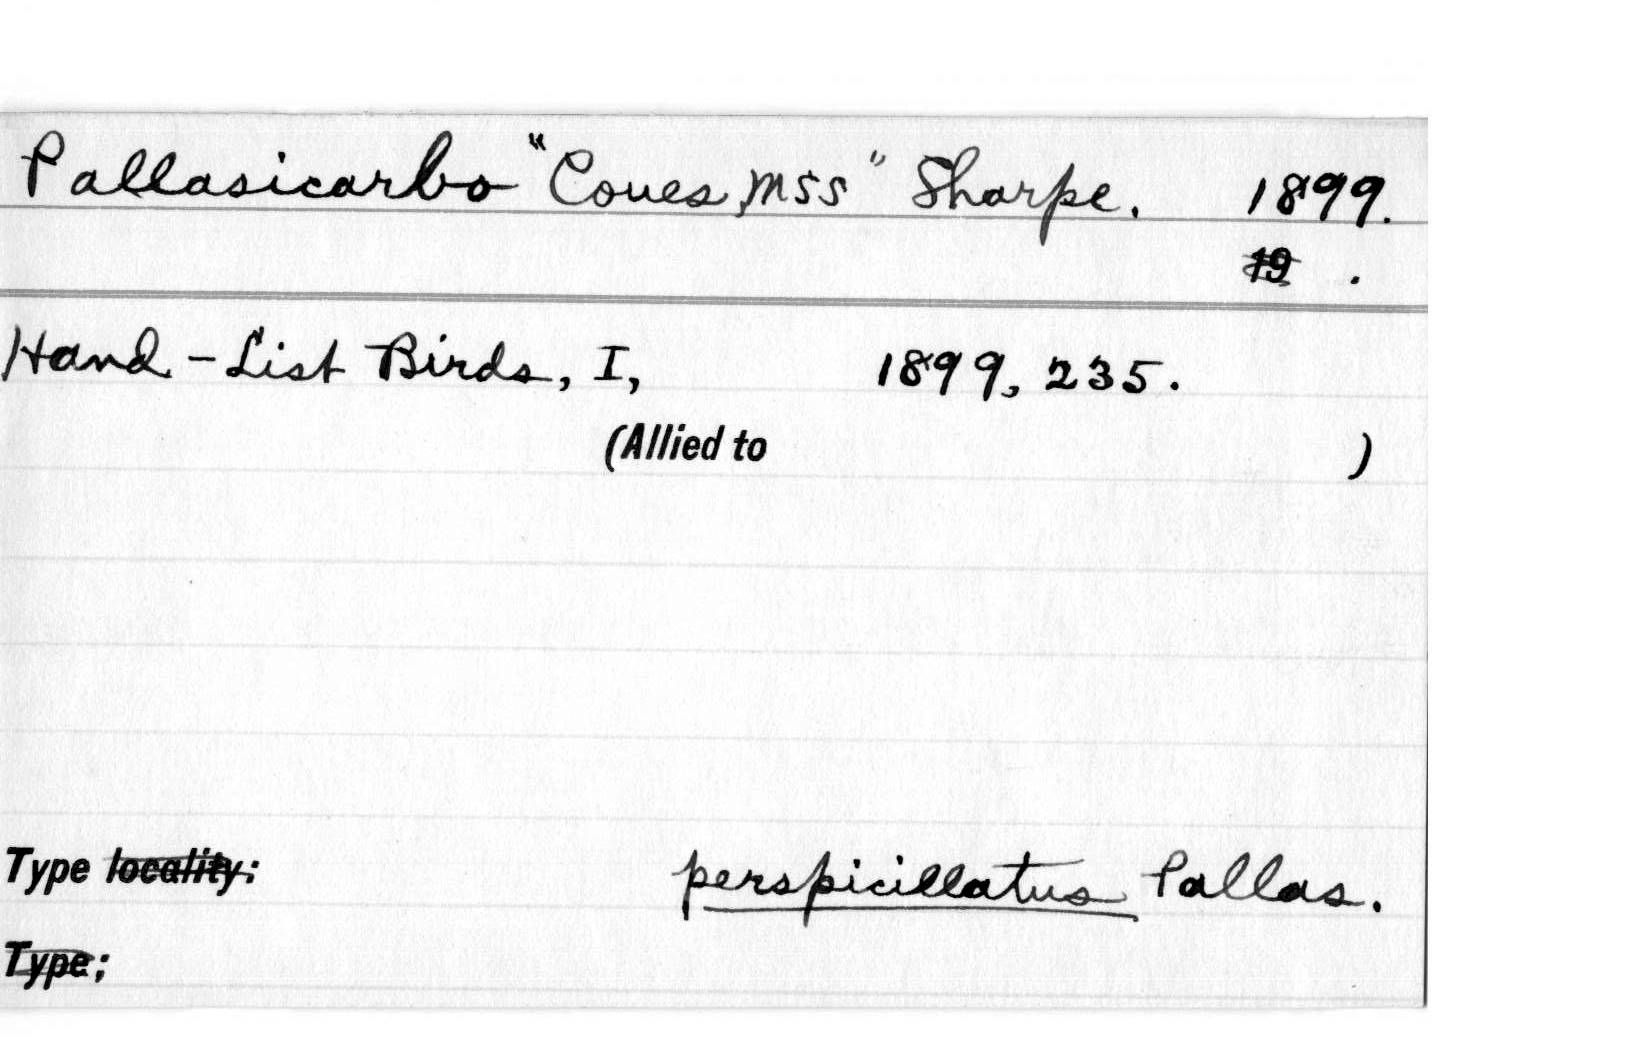 Pallasicarbo "Coues, MSS" Sharpe. 1899.
19 .
Hand-List Birds, I, 1899, 235.
(Allied to )
Type locality: perspicillatus Pallas.
Type;